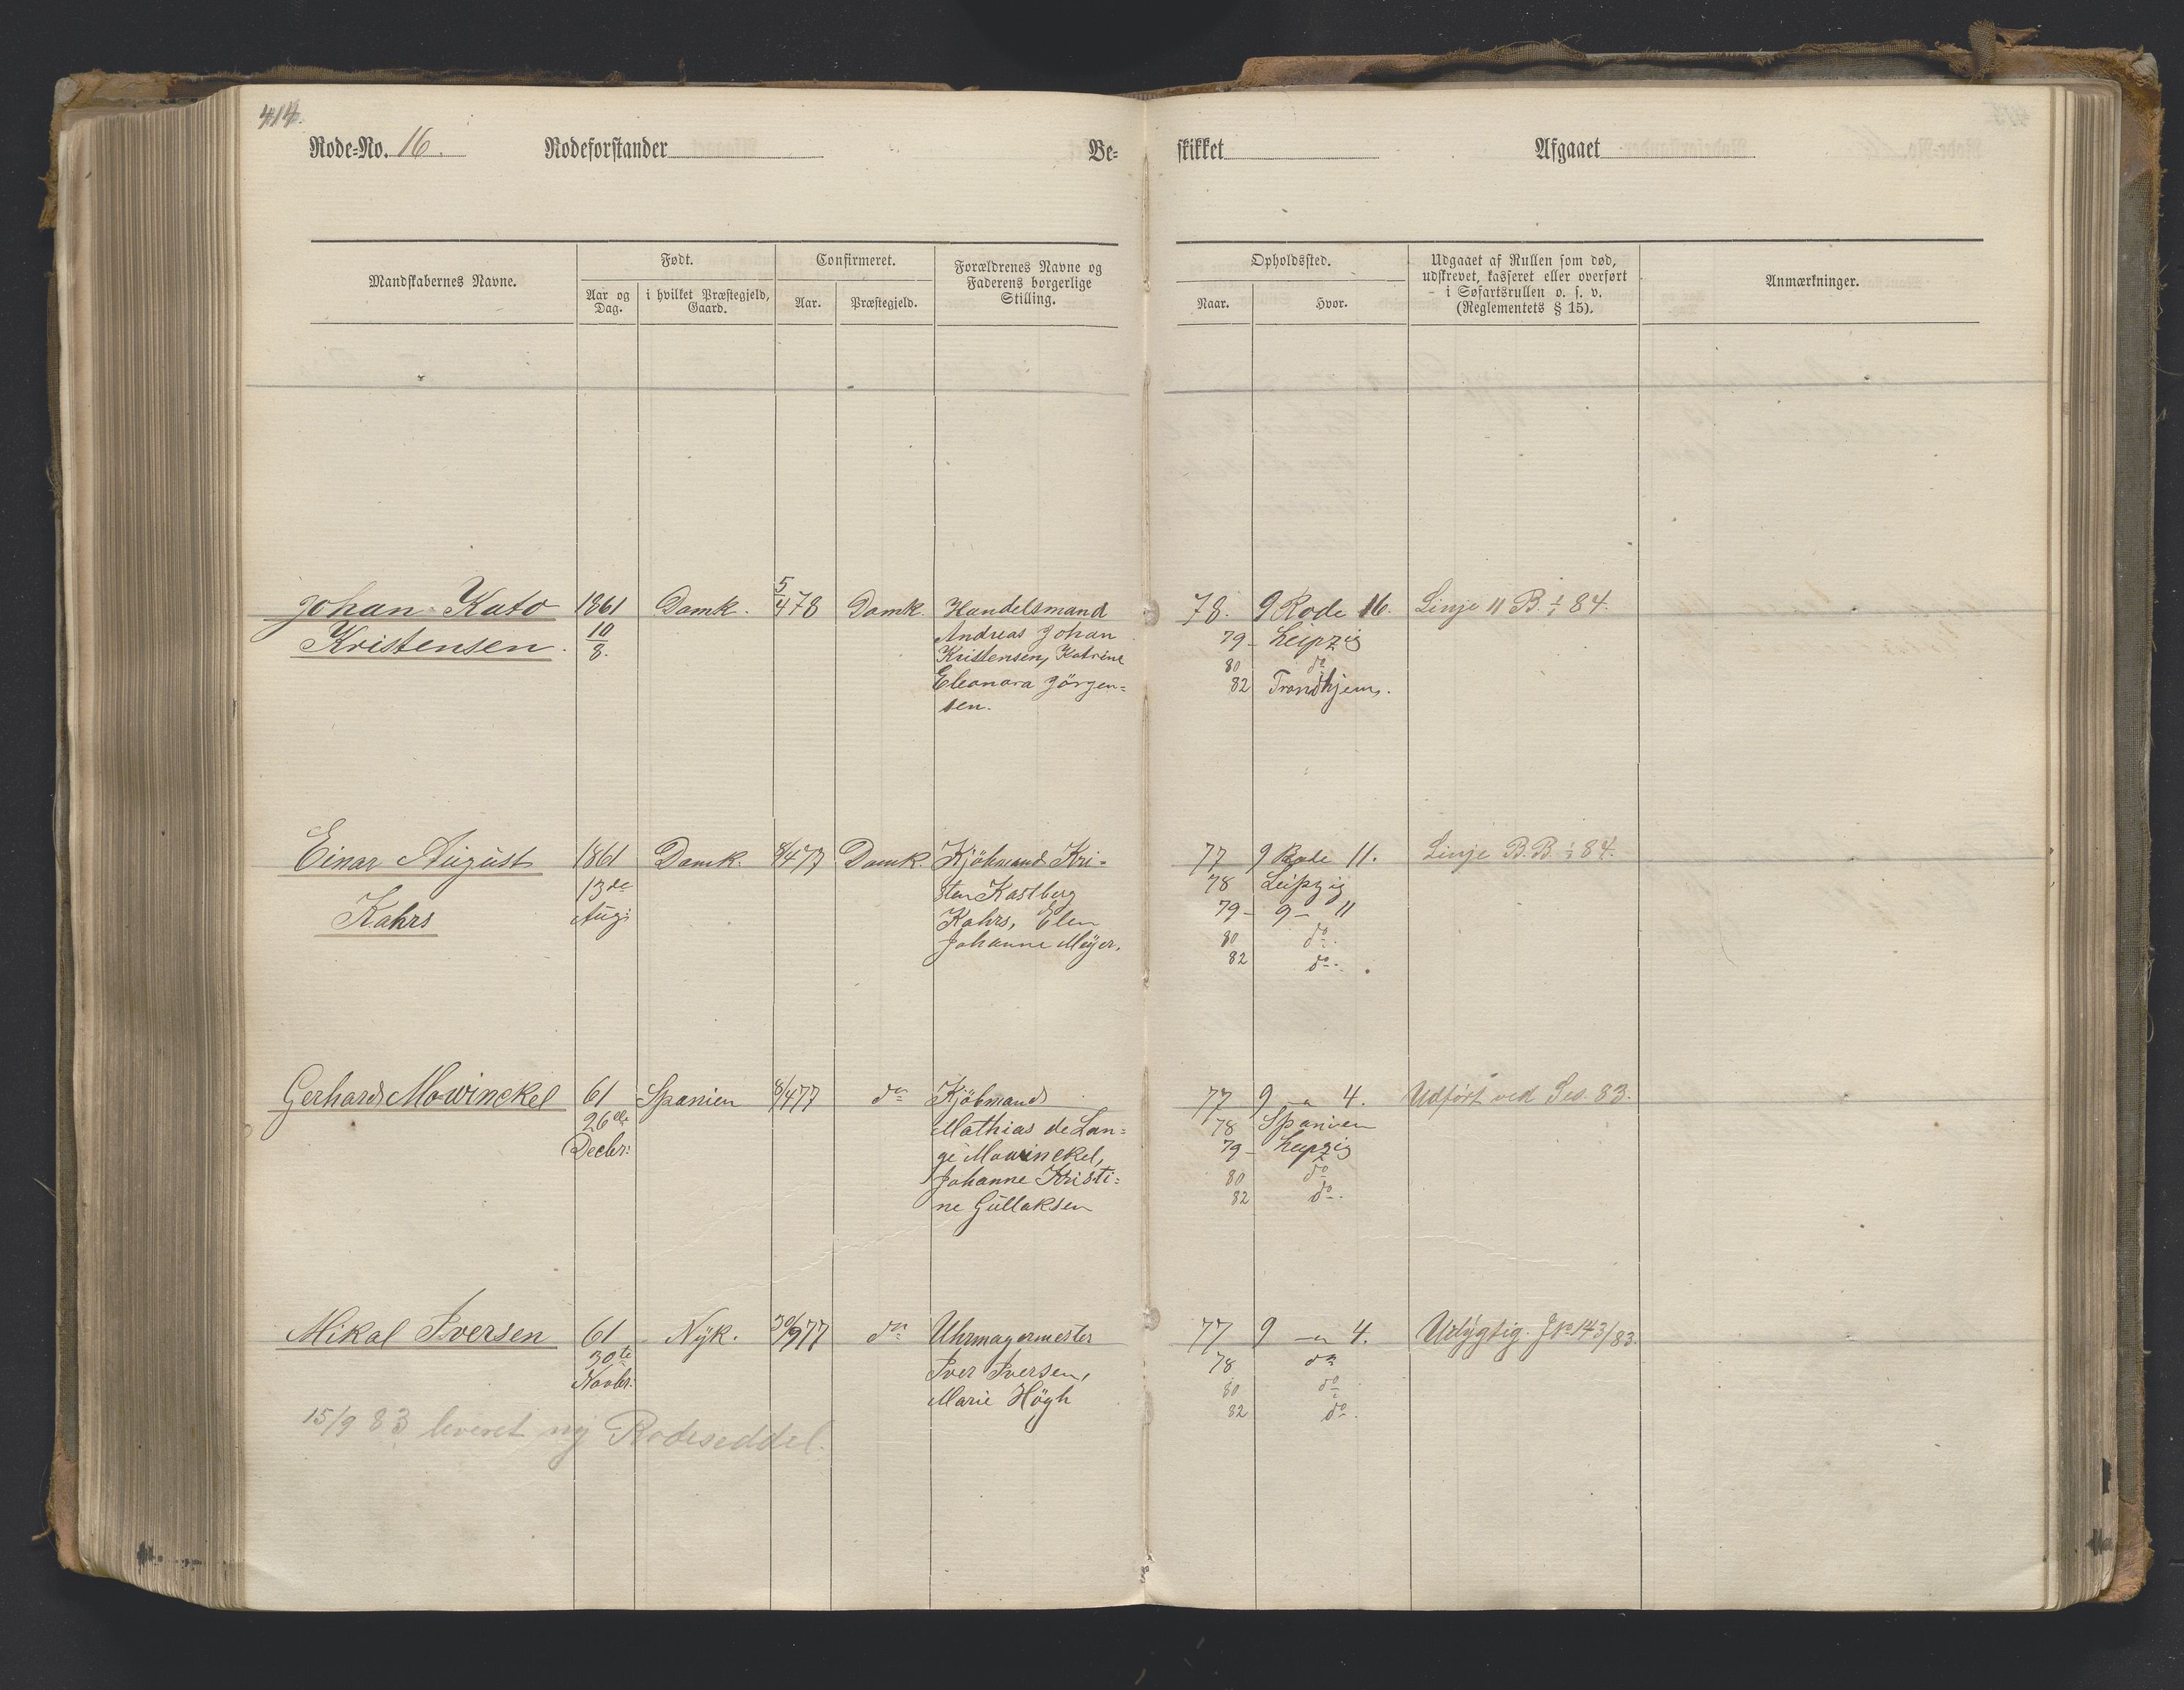 414.
Rode=No. 16. Rodeforstander Be= skikket Afgaaet
Mandskabernes Navne. Født. Confirmeret. Forældrenes Navne og Faderens borgerlige Stilling. Opholdssted. Udgaaet af Rullen som død, udskrevet, kasseret eller overført i Søfartsrullen o. s. v. (Reglementets § 15). Anmærkninger.
Aar og Dag. i hvilket Præstegjeld, Gaard. Aar. Præstegjeld. Naar. Hvor.
Johan Kato 1861 Domk. 5/4 78 Domk. Handelsmand 78. 9 Rode 16. Linje 11 B. 1/1 84.
Kristensen. 10/8. Andreas Johan 79 - Leipzig
Kristensen, Katrine 80 do
Eleonora Jörgen= 82 Trondhjem.
sen.
Einar August 1861 Domk. 8/4 77 Domk. Kjöbmand Kri- 77 9 Rode 11. Linje B. B. 1/1 84.
13de sten Kastberg 78 Leipzig
Kahrs Aug: Kahrs, Elen 79 - 9 - 11
Johanne Meyer. 80 do.
82 do.
Gerhard Mowinckel 61 Spanien 8/4 77 do Kjöbmand 77 9 - " 4. Udfört ved Ses. 83.
26de Mathias de Lan= 78 Spanien
Decbr: ge Mowinckel, 79 - Leipzig
Johanne Kristi= 80 do
ne Gullaksen 82 do.
Mikal Iversen 61 Nyk. 30/9 77 do Uhrmagermester 77 9 - " 4. Udygtig. J No 143/83.
30te Iver Iversen, 78 do
Novbr: Marie Högh 80 do
82 do.
15/9 83 leveret ny Rodeseddel.